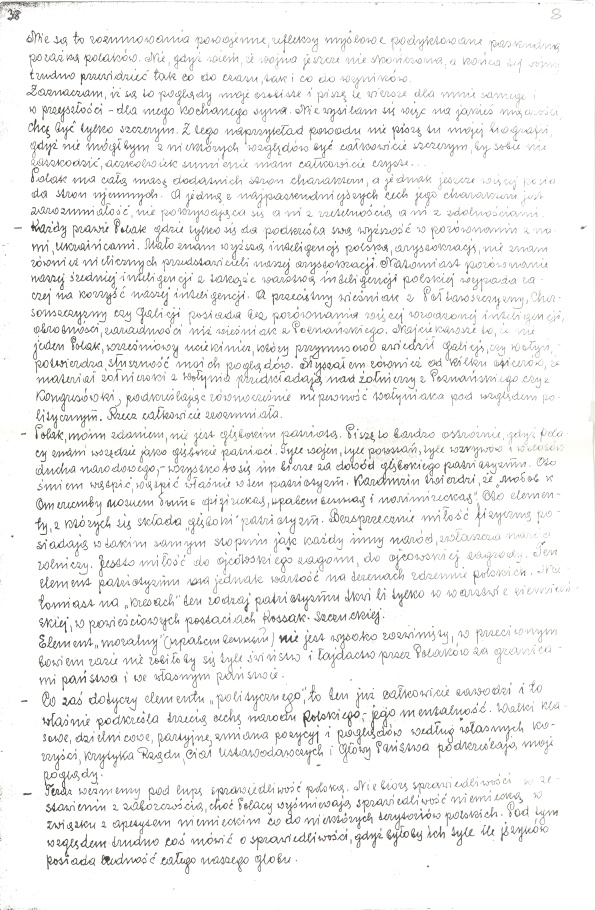 38
8
Nie są to rozumowania powojenne, refleksy myślowe podyktowane paskudną
porażką polaków. Nie, gdyż wiem, iż wojna jeszcze nie skończona, a końca tej wojny
trudno przewidzieć tak co do czasu, tak i co do wyników.
Zaznaczam, iż są to poglądy moje osobiste i piszę te wiersze dla mnie samego i
w przyszłości - dla mego kochanego syna. Nie wysilam się więc na jakieś mądrości,
chcę być tylko szczerym. Z tego naprzykład powodu nie piszę tu mojej biografii,
gdyż nie mógłbym z niektórych względów być całkowicie szczerym, by sobie nie
zaszkodzić, aczkolwiek sumienie mam całkowicie czyste...
Polak ma całą masę dodatnich stron charakteru, a jednak jeszcze więcej posia-
da stron ujemnych. A jedną z najpaskudniejszych cech jego charakteru jest
zarozumiałość, nie pokrywająca się ani z rzetelnością ani z zdolnościami.
- Każdy prawie Polak gdzie tylko się da podkreśla swą wyższość w porównaniu z na-
mi, ukraińcami. Mało znam wyższą inteligencję polską, arystokrację, nie znam
również nielicznych przedstawicieli naszej arystokracji. Natomiast porównanie
naszej średniej inteligencji z takąże warstwą inteligencji polskiej wypada ra-
czej na korzyść naszej inteligencji. A przeciętny wieśniak z Połtawszczyzny, Cher-
sonszczyzny czy Galicji posiada bez porównania więcej wrodzonej inteligencji,
obrotności, zaradności niż wieśniak z Poznańskiego. Najciekawsze to, że nie
jeden Polak, wrześniowy uciekinier, który przymusowo zwiedził Galicję, czy Wołyń,
potwierdza słuszność moich poglądów. Słyszałem również od kilku oficerów, że
materiał żołnierski z Wołynia przedkładają nad żołnierzy z Poznańskiego czy z
Kongresówki, podkreślając równocześnie niepewność wołyniaka pod względem po-
litycznym. Rzecz całkowicie zrozumiała.
- Polak, moim zdaniem, nie jest głębokim patriotą. Piszę to bardzo ostrożnie, gdyż Pola-
cy znani wszędzie jako głębocy patrioci. Tyle wojen, tyle powstań, tyle wzrywów i wzlotów
ducha narodowego, - wszystko to się im bierze za dowód głębokiego patriotyzmu. Oto
śmiem wątpić, wątpić właśnie w ten patriotyzm. Karamzin twierdzi, że „любовь к
Отечеству может быть физическая, нравственная и политическая". Oto elemen-
ty, z których się składa „głęboki" patriotyzm. Bezsprzecznie miłość fizyczną po-
siadają w takim samym stopniu jak każdy inny naród, zwłaszcza naród
rolniczy. Jest to miłość do ojcowskiego zagonu, do ojcowskiej zagrody. Ten
element patriotyzmu ma jednak wartość na terenach rdzennie polskich. Na-
tomiast na „kresach" ten rodzaj patriotyzmu tkwił tylko w warstwie ziemiań-
skiej, w powieściowych postaciach Kossak-Szczuckiej.
Element „moralny" (нравственный) nie jest wysoko rozwinięty, w przeciwnym
bowiem razie nie robiłoby się tyle świństw i łajdactw przez Polaków za granica-
mi państwa i we własnym państwie.
- Co zaś dotyczy elementu „politycznego", to ten już całkowicie zawodzi i to
właśnie podkreśla trzecią cechę narodu polskiego, - jego mentalność. Walki kla-
sowe, dzielnicowe, partyjne, zmiana pozycyj i poglądów według własnych ko-
rzyści, krytyka Rządu, Ciał Ustawodawczych i Głowy Państwa podkreślają moje
poglądy.
- Teraz weźmiemy pod lupę sprawiedliwość polską. Nie biorę sprawiedliwości w ze-
stawieniu z zaborczością, choć Polacy wyśmiewają sprawiedliwość niemiecką w
związku z apetytem niemieckim co do niektórych terytoriów polskich. Pod tym
względem trudno coś mówić o sprawiedliwości, gdyż byłoby ich tyle ile języków
posiada ludność całego naszego globu.